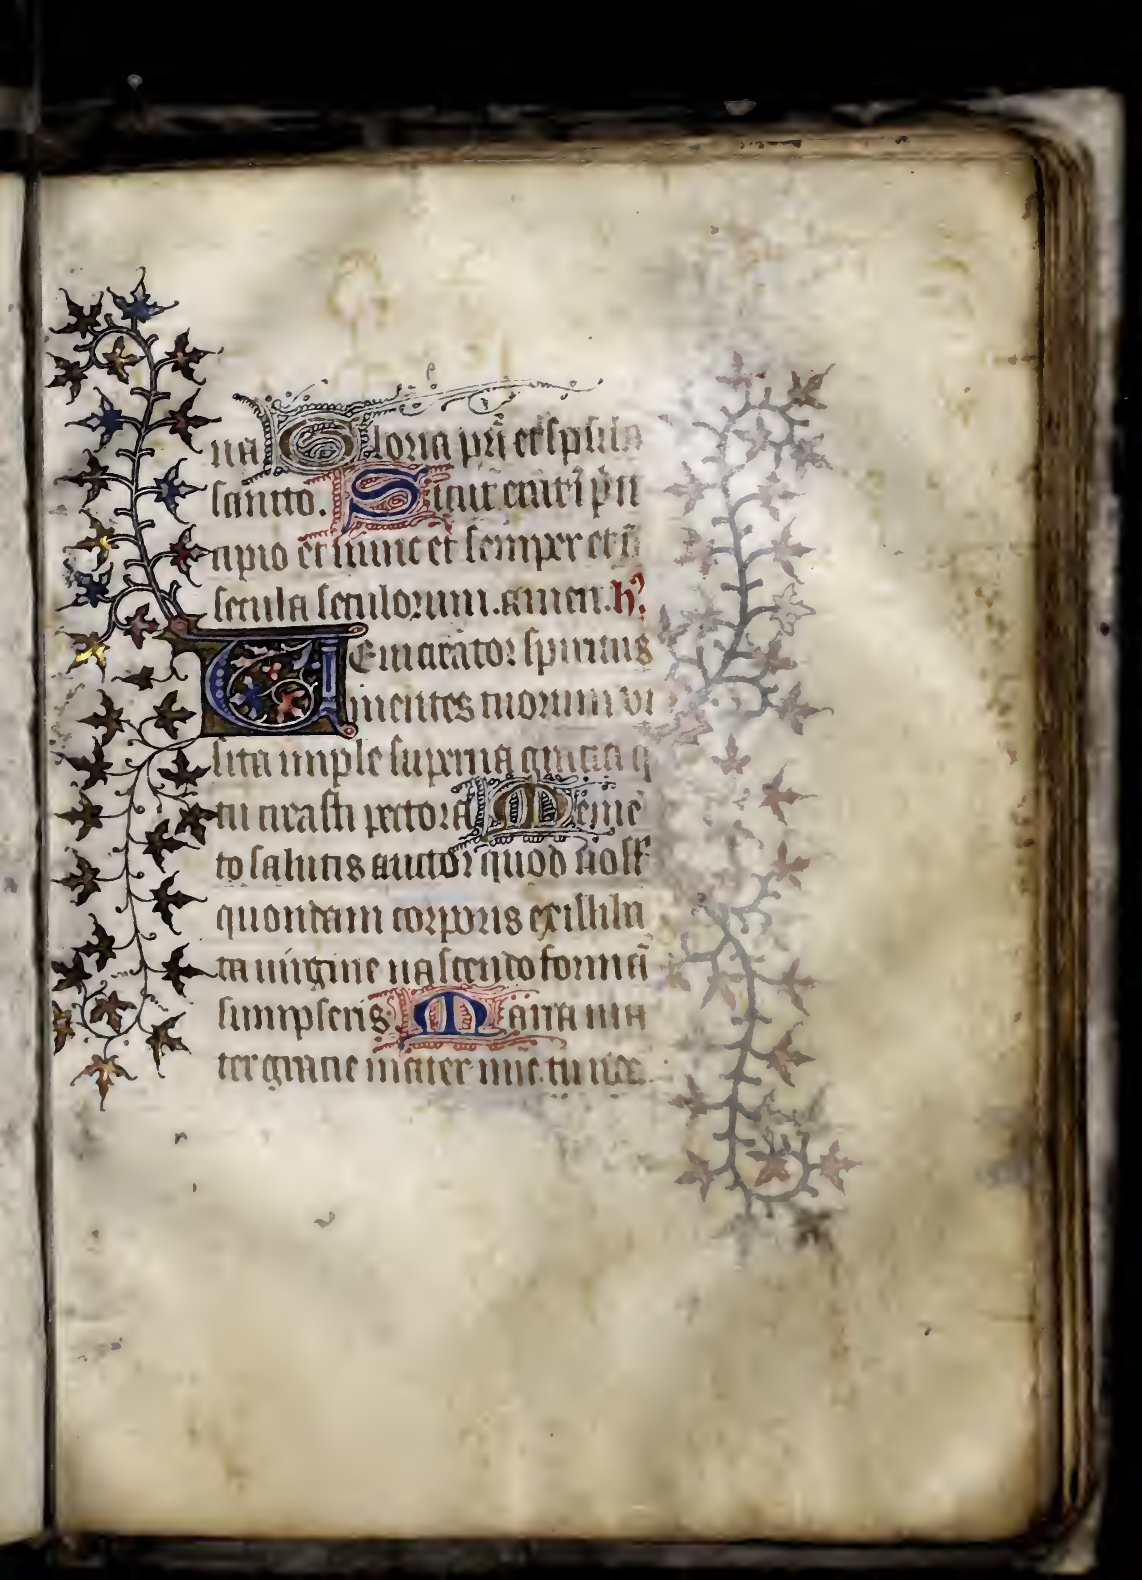 na Gloria pri et spūi sā
sancto. Sicut erat ī prī
cipio et nunc et semper et ī
secula seculorum. amen. h9.
UEni creator spiritus
mentes tuorum vi
sita imple superna gratia q
tu creasti pectora Memē
to salutis auctor quod nost
quondam corporis ex illiba
ta uirgine nascendo formā
sumpseris Maria ma
ter gratie mater mīe. tu nos